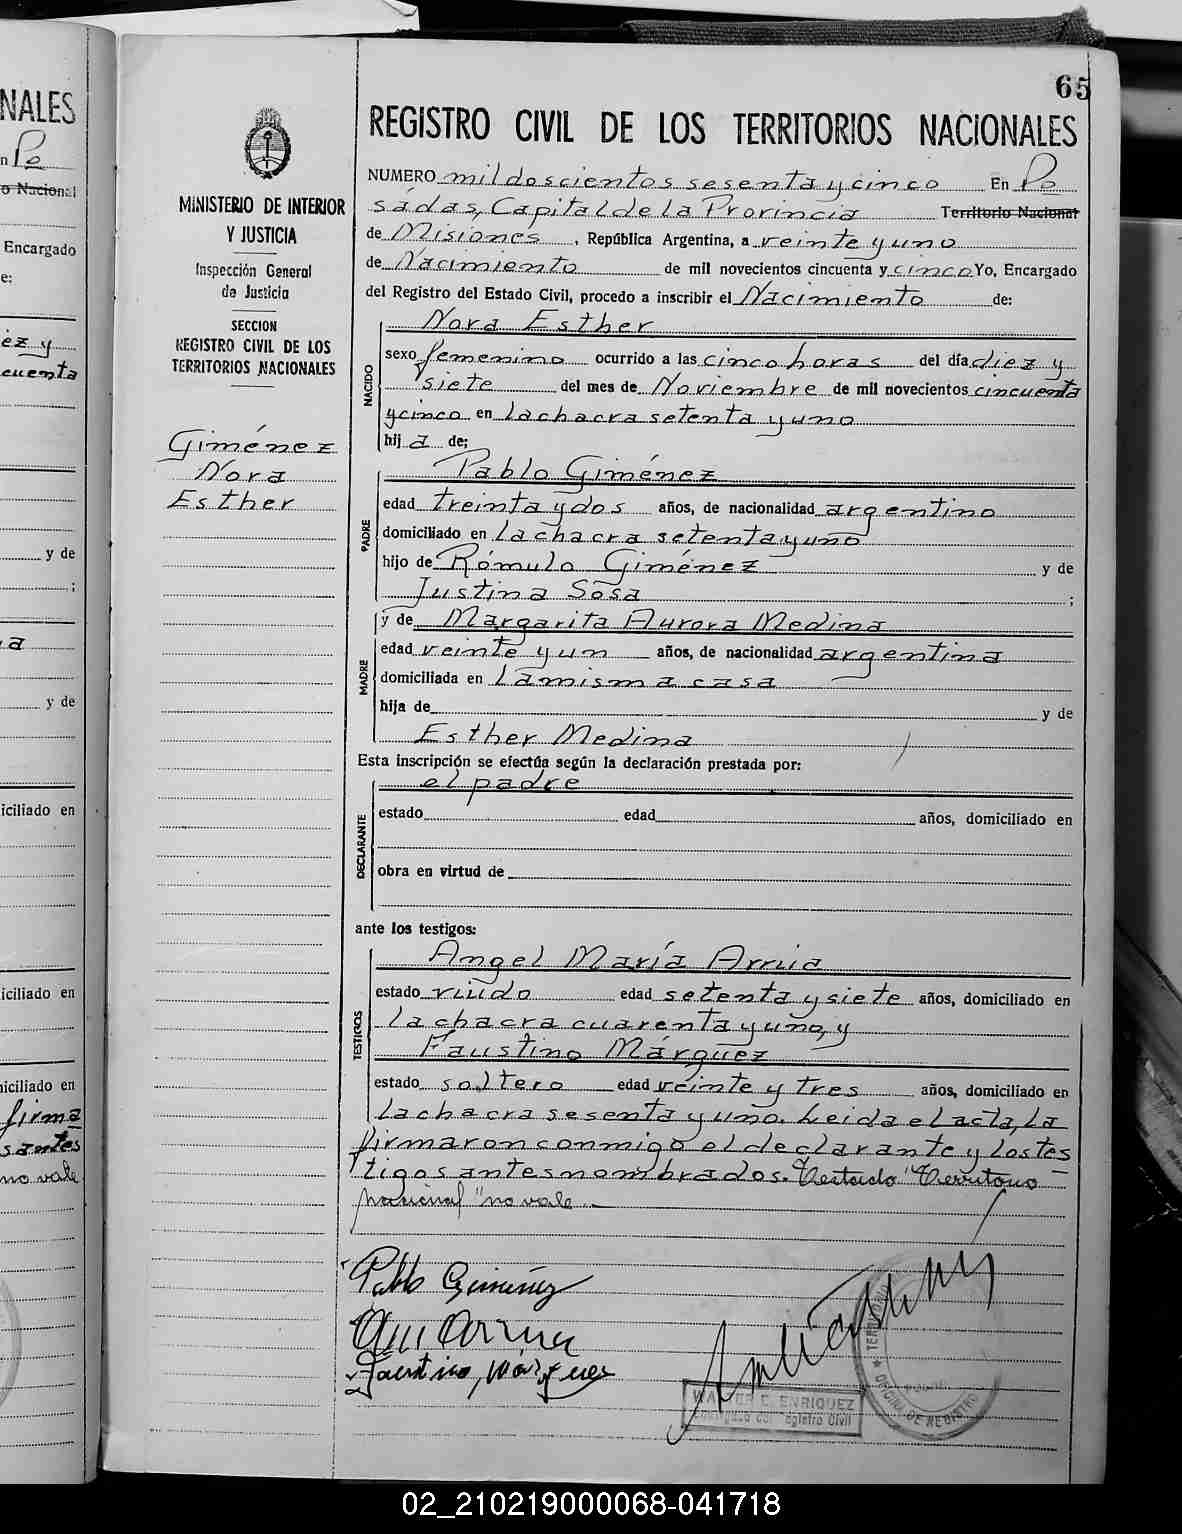 NALES
n Po
o Nacional
Encargado
e:
ez y
cuenta
y de
;
a
y de
iciliado en
iciliado en
iciliado en
firma
santes
no vale
65
MINISTERIO DE INTERIOR
Y JUSTICIA
Inspección General
de Justicia
SECCION
REGISTRO CIVIL DE LOS
TERRITORIOS NACIONALES
Giménez
Nora
Esther
REGISTRO CIVIL DE LOS TERRITORIOS NACIONALES
NUMERO mil doscientos sesenta y cinco En Po
sádas, Capital de la Provincia Territorio Nacional
de Misiones, República Argentina, a veinte y uno
de Nacimiento de mil novecientos cincuenta y cinco Yo, Encargado
del Registro del Estado Civil, procedo a inscribir el Nacimiento de:
NACIDO
Nora Esther
sexo femenino ocurrido a las cinco horas del día diez y
siete del mes de Noviembre de mil novecientos cincuenta
y cinco en la chacra setenta y uno
hij a de;
PADRE
Pablo Giménez
edad treinta y dos años, de nacionalidad argentino
domiciliado en la chacra setenta y uno
hijo de Rómulo Giménez y de
Justina Sosa ;
MADRE
y de Margarita Aurora Medina
edad veinte y un años, de nacionalidad argentina
domiciliada en la misma casa
hija de y de
Esther Medina
Esta inscripción se efectúa según la declaración prestada por:
DECLARANTE
el padre
estado edad años, domiciliado en
obra en virtud de
ante los testigos:
TESTIGOS
Angel María Arrúa
estado viudo edad setenta y siete años, domiciliado en
la chacra cuarenta y uno, y
Faustino Márquez
estado soltero edad veinte y tres años, domiciliado en
la chacra sesenta y uno. Leida el acta, la
firmaron conmigo el declarante y los tes
tigos antes nombrados. Testado "Territorio
nacional" no vale.
Pablo Gimenez
Faustino, Marquez
WALTER E. ENRIQUEZ
Encargado del Registro Civil
OFICINA DE REGISTRO
02_210219000068-041718